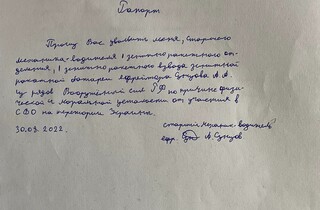 Рапорт
Прошу Вас уволить меня, старшего
механика-водителя 1 зенитно ракетного от-
деления, 1 зенитно ракетного взвода зенитной
ракетной батареи ефрейтора А.А.
из рядов Вооружённых сил РФ по причине физи-
ческой и моральной усталости от участия в
СВО на территории Украины.
30.08.2022.
старший механик водитель
ефр. А.